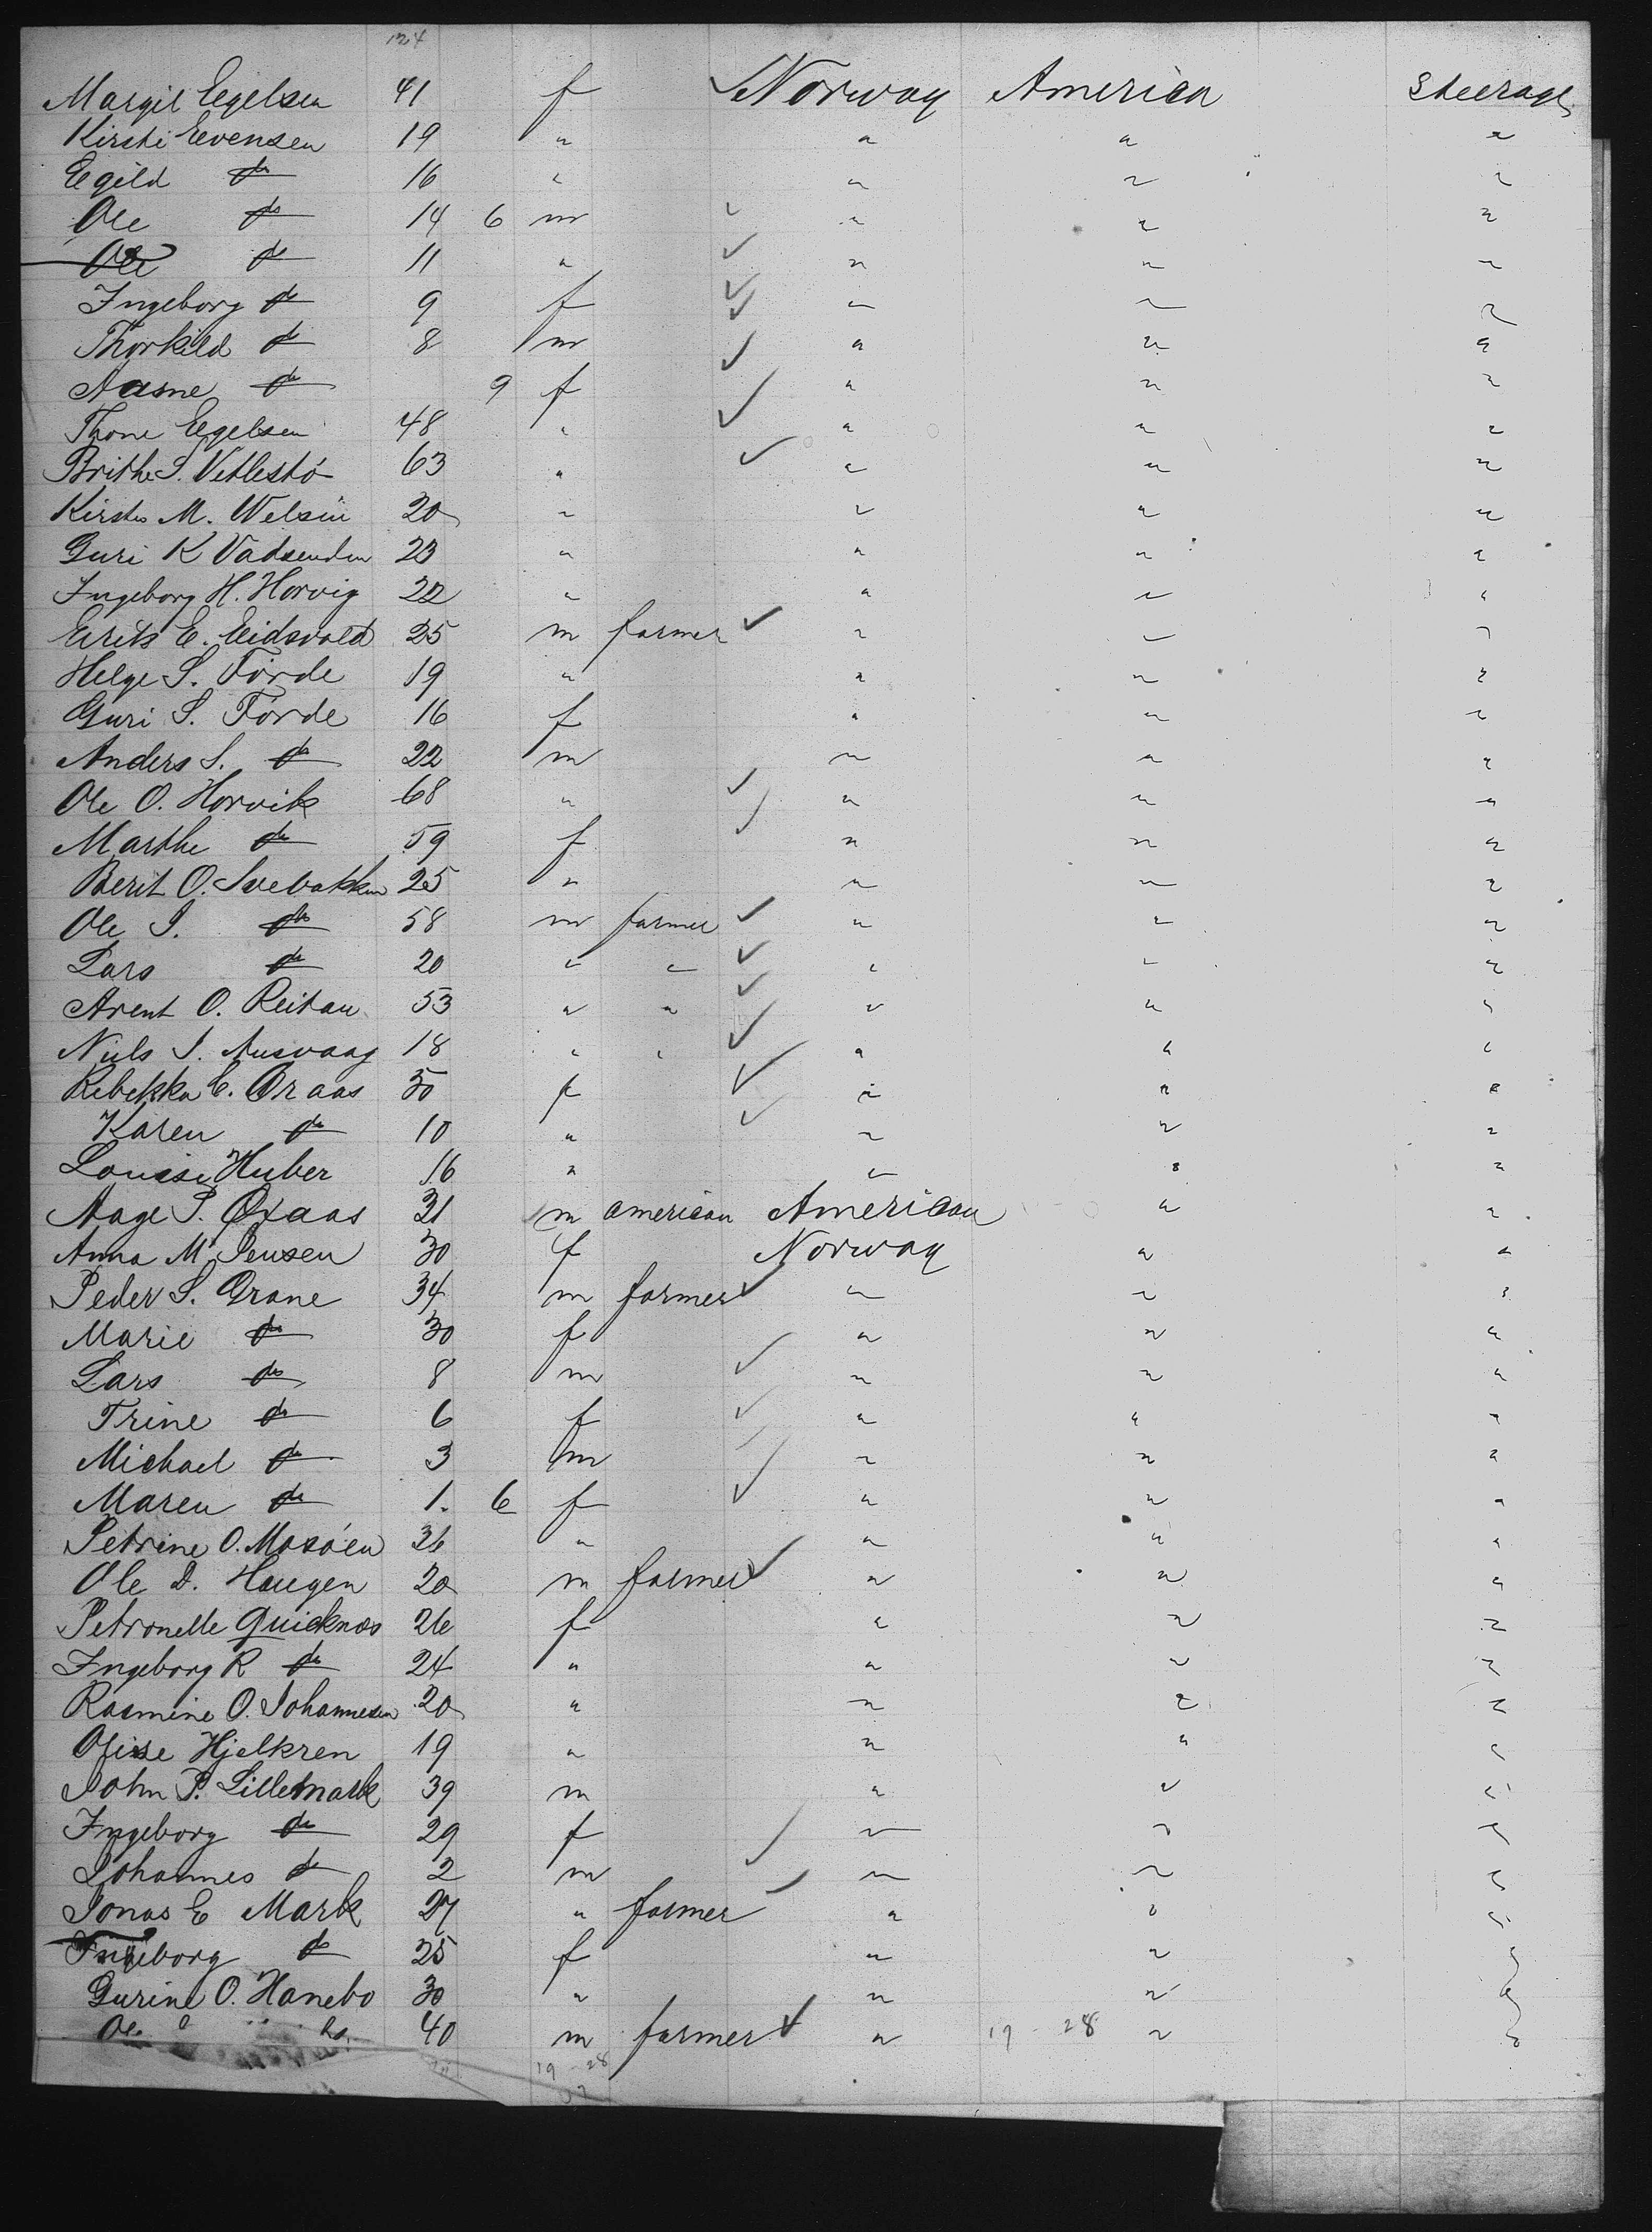 124
Margit Egelsen 41 f ✓ Norway America Steerage
Kirsti Evensen 19 " " " "
Egild do 16 " " " "
Ole do 14 6 m ✓ " " "
Ole do 11 " ✓ " " "
Ingeborg do 9 f ✓ " " "
Thorkild do 8 m ✓ " " "
Aasne do 9 f ✓ " " "
Thone Egelsen 48 " ✓ " " "
Brithe S. Vetlestö 63 " ✓ " " "
Kirsti M. 20 " " " "
Guri K 23 " " " "
Ingeborg H. Horvig 22 " " " "
E. Eidsvold 25 m farmer ✓ " " "
Helge S. Förde 19 " " " "
Guri S. Förde 16 f " " "
Anders S. do 22 m " " "
Ole O. Horvik 68 " ✓ " " "
Marthe do 59 f ✓ " " "
Berit O. Svebakken 25 " " " "
Ole S. do 58 m farmer ✓ " " "
Lars do 20 " " ✓ " " "
Arent O. Reitan 53 " " ✓ " " "
Niels J. Ausvaag 18 " " ✓ " " "
Rebekka E. Graas 50 f ✓ " " "
Karen do 10 " ✓ " " "
Louise Huber 16 " " " "
Aage P. Oxaas 31 m american American " "
Anna M. Jensen 30 f Norway " "
Peder S. Grane 34 m farmer ✓ " " "
Marie do 30 f " " "
Lars do 8 m ✓ " " "
Trine do 6 f ✓ " " "
Michael do 3 m ✓ " " "
Maren do 1. 6 f ✓ " " "
Petrine O. Mosöen 36 " " " "
Ole D. Haugen 20 m farmer ✓ " " "
Petronelle Quicknes 26 f " " "
Ingeborg R do 24 " " " "
Rasmine O. Johannesen 20 " " " "
Oline Hjelkren 19 " " " "
John P. Lillemark 39 m " " "
Ingeborg do 29 f " " "
Johannes do 2 m ✓ " " "
Jonas E Mark 27 " farmer ✓ " " "
Ingeborg do 25 f " " "
Gurine O. Hanebo 30 " " " "
Ole 40 m farmer ✓ " 19 - 28 " "
19 - 28